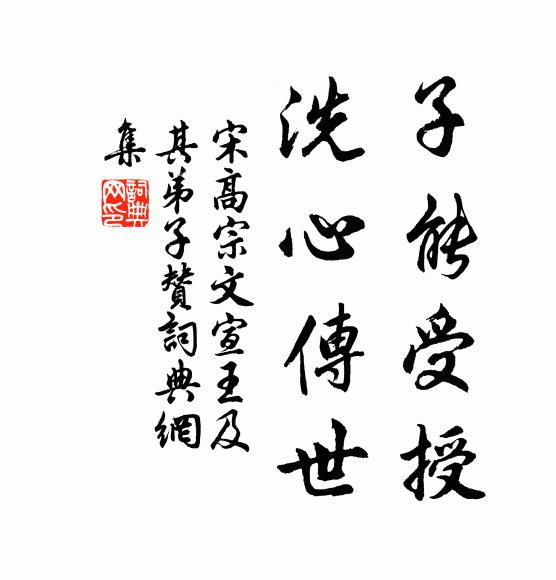 子能受授
洗心傳世
宋高宗文宣王及
其弟子贊詞典網
集
詞典
网印